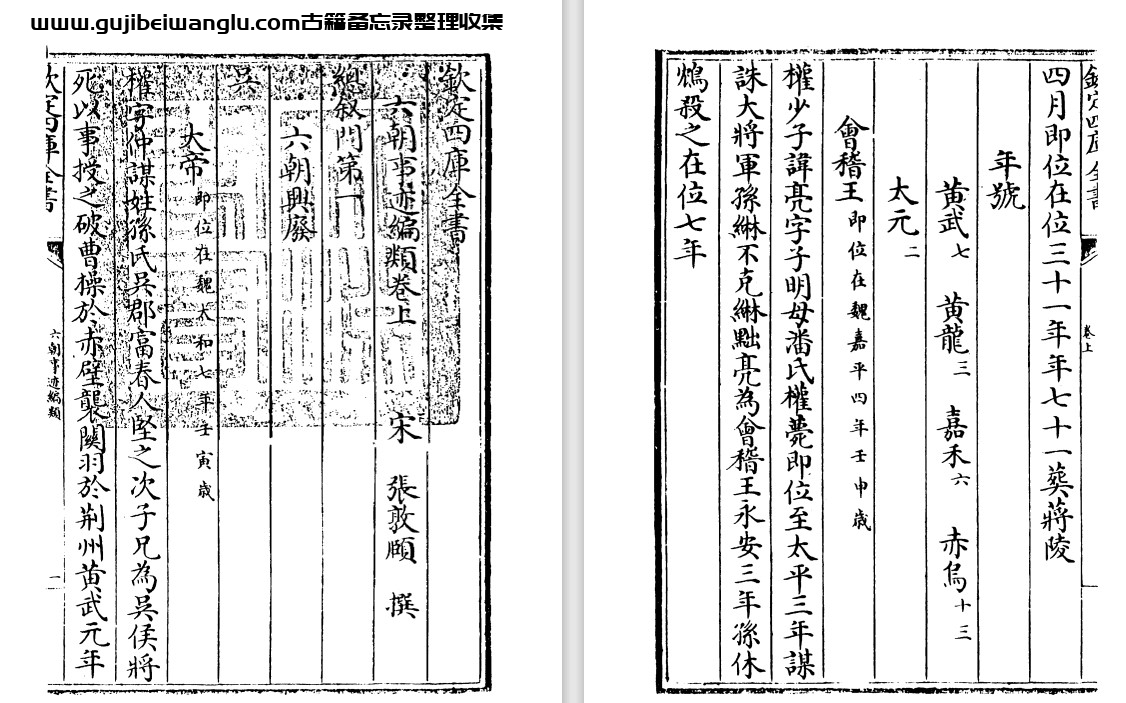 www.gujibeiwanglu.com古籍备忘录整理收集
欽定四庫全書
六朝事迹編類卷上
宋 張敦頤 撰
總叙門第一
六朝興廢
吳
大帝 即位在魏太和七年壬寅歲
權字仲謀姓孫氏吳郡富春人堅之次子兄為吳侯將
死以事授之破曹操於赤壁襲關羽於荆州黄武元年
欽定四庫全書
六朝事迹編類
一
欽定四庫全書
卷上
四月即位在位三十一年年七十一葬蔣陵
年號
黄武七 黄龍三 嘉禾六 赤烏十三
太元二
會稽王 即位在魏嘉平四年壬申歲
權少子諱亮字子明母潘氏權薨即位至太平三年謀
誅大將軍孫綝不克綝黜亮為會稽王永安三年孫休
鴆殺之在位七年